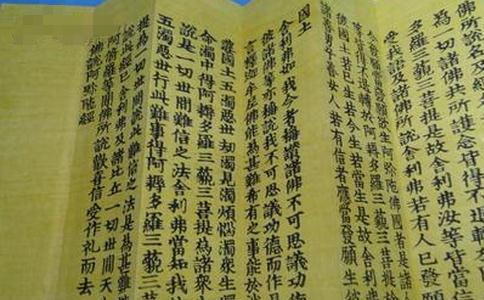 佛所說名及經名
為一切諸佛共所護念皆得不退轉
多羅三藐三菩提是故舍利弗汝等皆當
受我語及諸佛所說舍利弗若有人已發
今發願當發願欲生阿彌陀佛國者是諸
等皆得不退轉於阿耨多羅三藐三菩提
彼國土若已生若今生若當生是故舍利
諸善男子善女人若有信者應當發願生
國土
舍利弗如我今者稱讚諸佛不可思議功
彼諸佛等亦稱說我不可思議功德而作是
言釋迦牟尼佛能為甚難希有之事能於
婆國土五濁惡世劫濁見濁煩惱濁眾生
命濁中得阿耨多羅三藐三菩提為諸眾
說是一切世間難信之法舍利弗當知我
五濁惡世行此難事得阿耨多羅三藐三
提為一切世間說此難信之法是為甚難
佛說此經已舍利弗及諸比丘一切世間天
阿修羅等聞佛所說歡喜信受作禮而去
佛說阿彌陀經